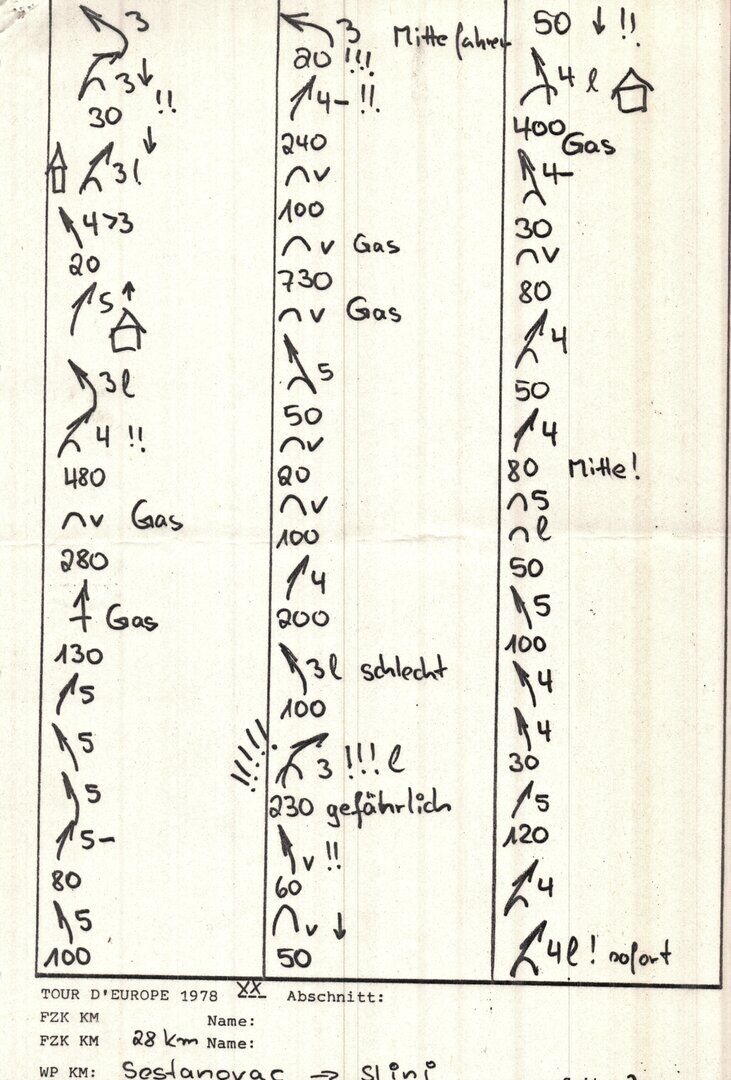 3
3
30 !!
3l
4>3
20
5
3l
4 !!
480
v Gas
280
Gas
130
5
5
5
5-
80
5
100
3 Mitte fahren
20 !!!
4- !!
240
v
100
v Gas
730
v Gas
5
50
v
20
v
100
4
200
3l schlecht
100
!!!!! 3 !!! l
230 gefährlich
v !!
60
v
50
50 !!
4 l
400 Gas
4-
30
v
80
4
50
4
80 Mitte!
5
l
50
5
100
4
4
30
5
120
4
4l! sofort
TOUR D'EUROPE 1978 XX Abschnitt:
FZK KM Name:
FZK KM 28 km Name:
WP KM: Sestanovac → Slini